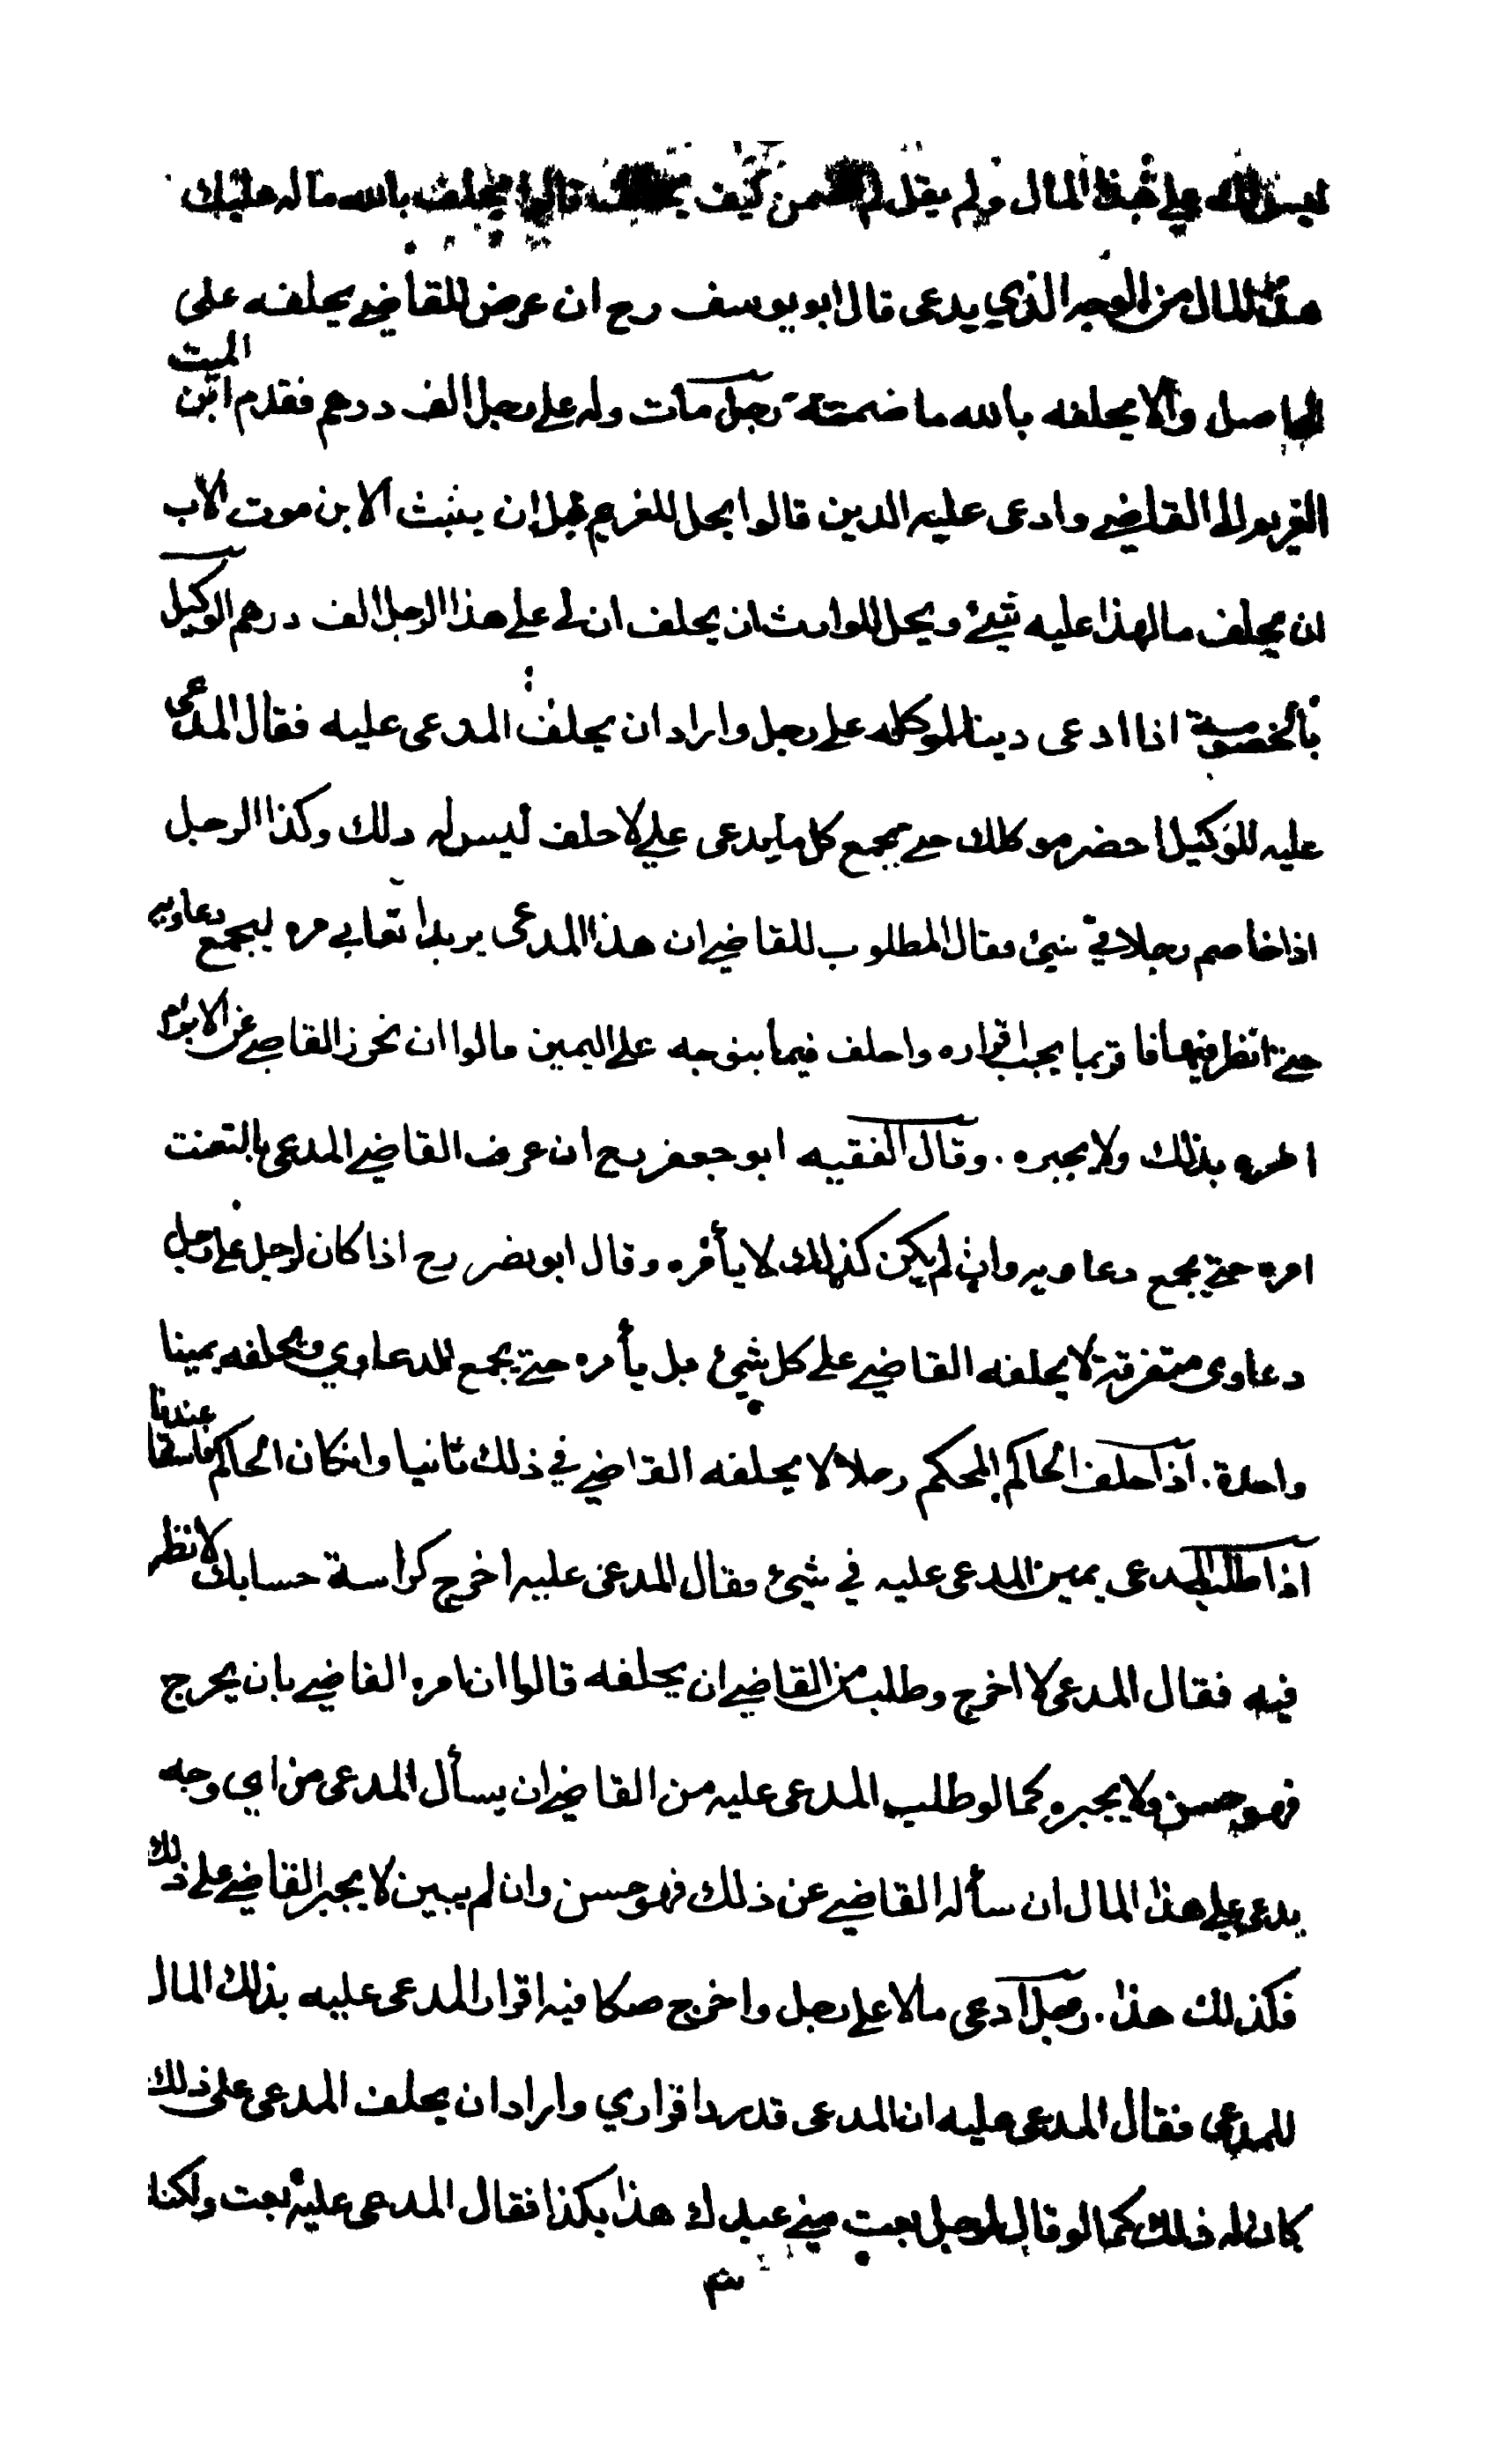 ليس له علي هذا المال ولم يقل لم اضمن كيف يحلف قالوا يحلف بالله ماله عليك
هذا المال من الوجه الذي يدعى قال ابو يوسف رح ان عرض للقاضي يحلفه على
الحاصل والا يحلفه بالله ما ضمنته رجل مات وله على رجل الف درهم فقدم ابن الميت
الغريم الى القاضي وادعى عليه الدين قالوا يحل للغريم قبل ان يثبت الابن موت الاب
ان يحلف ما لهذا عليه شيئ ويحل للوارث ان يحلف ان لي على هذا الرجل الف درهم الوكيل
بالخصومة اذا ادعى دينا لموكله على رجل واراد ان يحلف المدعى عليه فقال المدعى
عليه للوكيل احضر موكلك حتى يجمع كل ما يدعى علي لاحلف ليس له ذلك وكذا الرجل
اذا خاصم رجلا في شيئ فقال المطلوب للقاضي ان هذا المدعى يريد اتعابي مره ليجمع دعاويه
حتى انظر فيها فاقر بما يجب اقراره واحلف فيما يتوجه على اليمين قالوا ان تحرز القاضي عن الابرام
امره بذلك ولا يجبره . وقال الفقيه ابو جعفر رح ان عرف القاضي المدعى بالتعنت
امره حتى يجمع دعاويه وان لم يكن كذلك لا يأمره وقال ابو نصر رح اذا كان لرجل على رجل
دعاوى متفرقة لا يحلفه القاضي على كل شيئ بل يأمره حتى يجمع الدعاوي ويحلفه يمينا
واحدة . اذا حلف الحاكم المحكم رجلا لا يحلفه القاضي في ذلك ثانيا وان كان الحاكم فاسقا عندنا
اذا طلب المدعى يمين المدعى عليه في شيئ فقال المدعى عليه اخرج كراسة حسابك لانظر
فيه فقال المدعى لا اخرج وطلب من القاضي ان يحلفه قالوا ان امره القاضي بان يخرج
فهو حسن ولا يجبره كما لو طلب المدعى عليه من القاضي ان يسأل المدعى من اي وجه
يدعى علي هذا المال ان سأله القاضي عن ذلك فهو حسن وان لم يبين لا يجبر القاضي على ذلك
فكذلك هذا . رجل ادعى مالا على رجل واخرج صكا فيه اقرار المدعى عليه بذلك المال
للمدعى فقال المدعى عليه ان المدعى قد رد اقراري واراد ان يحلف المدعى على ذلك
كان له ذلك كما لو قال لرجل بعت مني عبدك هذا بكذا فقال المدعى عليه بعت ولكنك